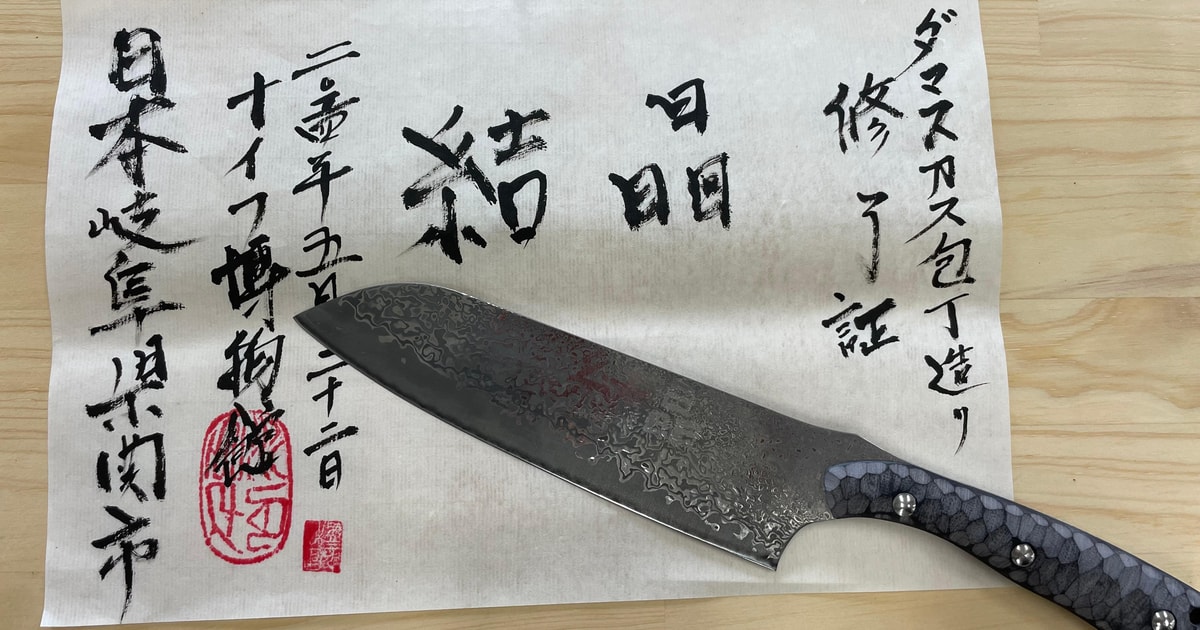 ダマスカス包丁造り
修了証
結晶
二〇二四年五月二十二日
ナイフ博物館
日本岐阜県関市